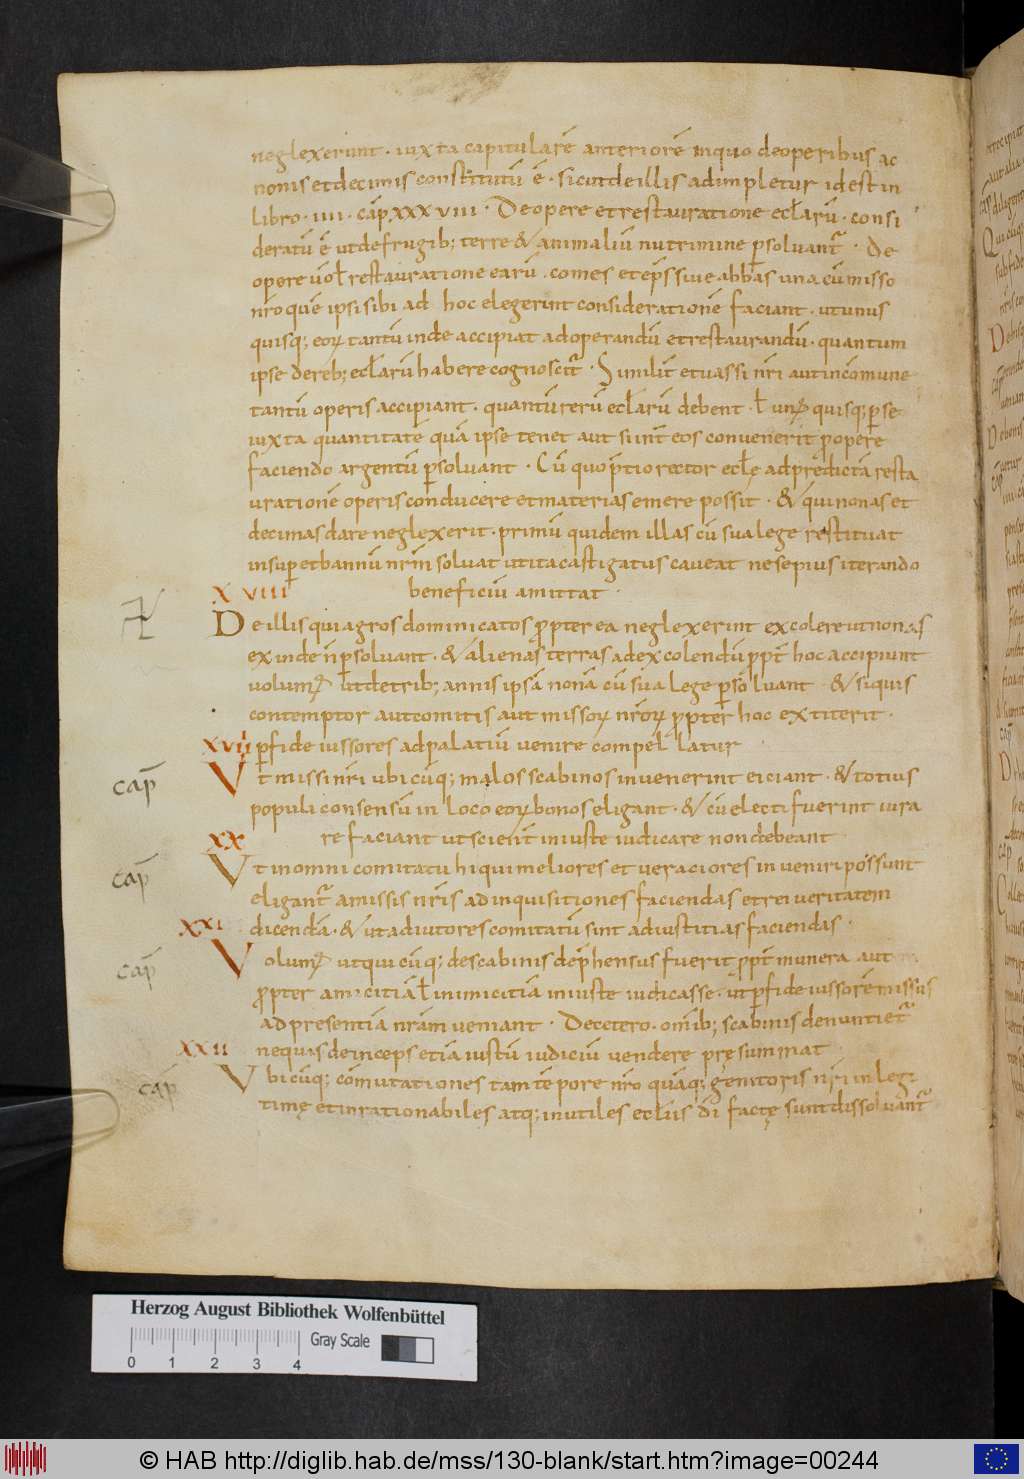 neglexerunt · iuxta capitularē anteriorē inquo deoperibus ac
nonis etdecimis constitutū ē · sicutdeillis adimpletur idest in
libro · iiii · cap̄ xxxviii · De opere etrestauratione eclarū · consi
deratū ē utdefrugib; terre & animaliū nutrimine psoluant · De
opere uł restauratione earū · comes etep̄s siue abbas una cū misso
nr̄o quē ipsisibi ad hoc elegerint considerationē faciant · utunus
quisq; eoꝝ tantū inde accipiat adoperandū etrestaurandū · quantum
ipse dereb; eclarū habere cognoscit · Similit etuassi nr̄i autincōmune
tantū operis accipiant · quantū rerū eclarū debent · ł unꝰ quisq; pse
iuxta quantitatē quā ipse tenet aut si int eos conuenerit p opere
faciendo argentū psoluant · Cū quo p̄tio rector ecłę adpredictā resta
urationē operis conducere etmaterias emere possit · & qui nonas et
decimas dare neglexerit · primū quidem illas cū sua lege restituat
insup etbannū nr̄m soluat utita castigatus caueat nesepius iterando
XVIII beneficiū amittat ·
De illis qui agros dominicatos ppterea neglexerint excolere utnonas
exinde n̄ psoluant · & alienas terras adexcolendū ppt hoc accipiunt
uolumꝰ utdetrib; annis ipsā nonā cū sua lege psoluant · & siquis
contemptor autcomitis aut missoꝝ nr̄oꝝ ppter hoc extiterit ·
XVIIII pfideiussores adpalatiū uenire compellatur
cap̄ Vt missi nr̄i ubicūq; malos scabinos inuenerint eiciant · & totius
populi consensū in loco eoꝝ bonos eligant · & cū electi fuerint iura
XX re faciant utscient iniuste iudicare non debeant
cap̄ Vt inomni comitatu hi qui meliores et ueraciores inueniri possunt
eligant amissis nr̄is adinquisitiones faciendas etrei ueritatem
XXI dicendā · & ut adiutores comitatū sint adiustitias faciendas ·
cap̄ Volumꝰ utquicūq; descabinis dep̄hensus fuerit ppt munera aut
ppter amicitiā ł inimicitiā iniuste iudicasse · ut pfideiussorē missus
ad presentiā nr̄am ueniant · Decetero · omīb; scabinis denuntiet
XXII nequis deinceps etiā iustū iudiciū uendere pręsummat
cap̄ Vbicūq; cōmutationes tam tēpore nr̄o quāq; genitoris nr̄i inlegi
timę etinrationabiles atq; inutiles ecłiis dī factę sunt dissoluant
Herzog August Bibliothek Wolfenbüttel
Gray Scale
0 1 2 3 4
© HAB http://diglib.hab.de/mss/130-blank/start.htm?image=00244